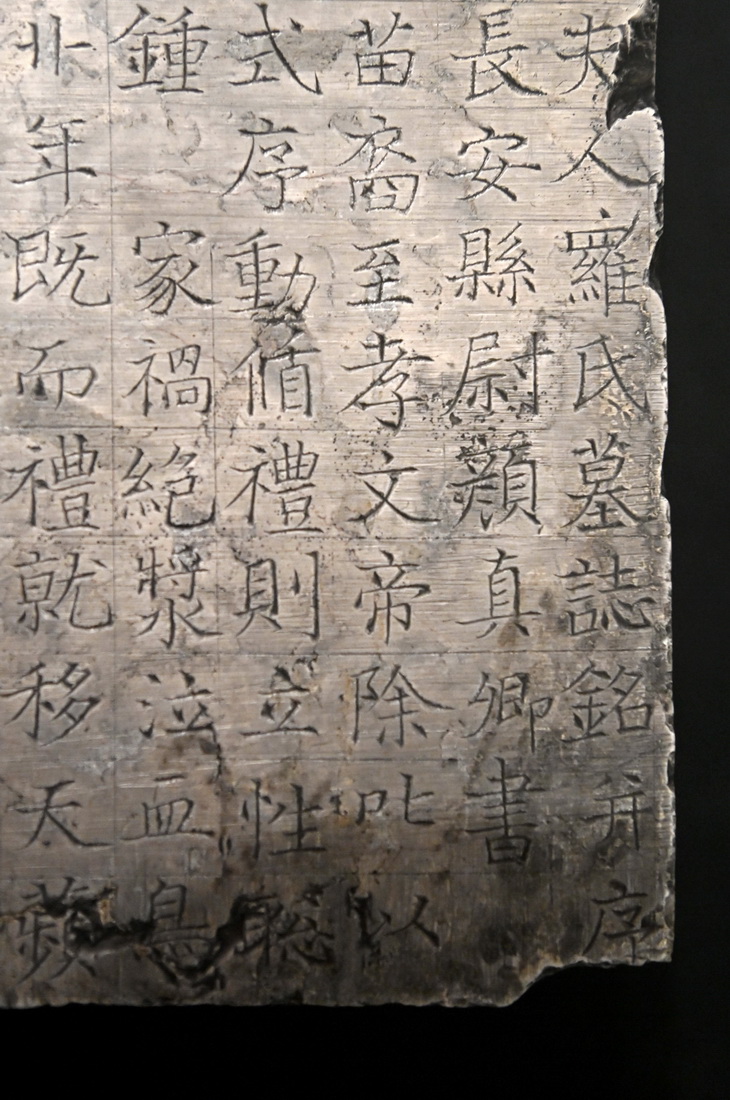 夫人羅氏墓誌銘并序
長安縣尉顏真卿書
苗裔至孝文帝除叱以
式序動循禮則立性聰
鍾 家禍絕漿泣血鳥
年既而禮就移天蘋